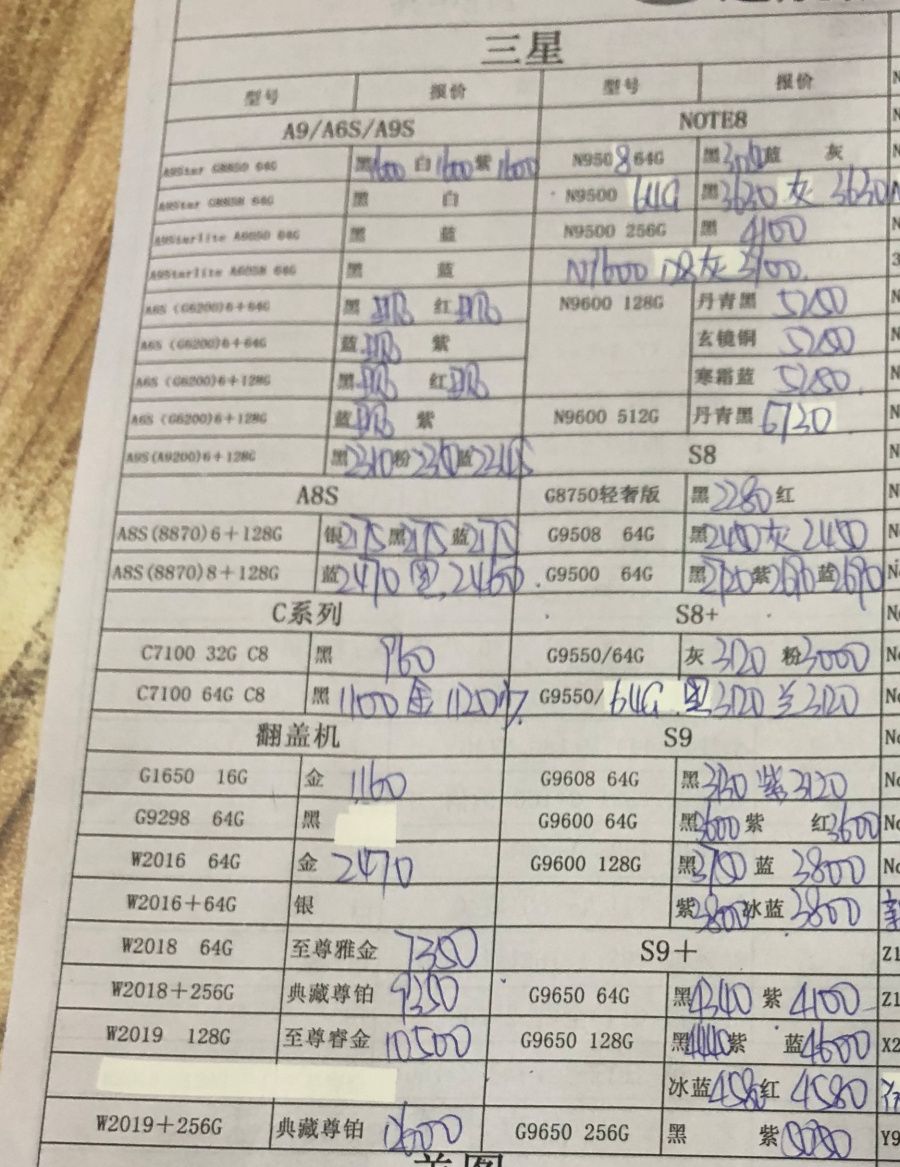 三星
型号 报价 型号 报价
A9/A6S/A9S NOTE8
A9Star G8850 64G 黑1600 白1600 紫1600 N9508 64G 黑 蓝 灰
A9Star G885H 64G 黑 白 N9500 64G 黑3630 灰 3630
A9Starlite A6050 64G 黑 蓝 N9500 256G 黑 4100
A9Starlite A605H 64G 黑 蓝 灰 3700
A6S (G6200)6+64G 黑 红 N9600 128G 丹青黑
A6S (G6200)6+64G 蓝 紫 玄镜铜
A6S (G6200)6+128G 黑 红 寒霜蓝
A6S (G6200)6+128G 蓝 紫 N9600 512G 丹青黑 6730
A9S(A9200)6+128G 黑 粉 蓝 S8
A8S G8750轻奢版 黑2280红
A8S(8870)6+128G 银2175黑2175蓝2175 G9508 64G 黑2480灰 2480
A8S(8870)8+128G 蓝2470 黑 2460 G9500 64G 黑 紫 蓝
C系列 S8+
C7100 32G C8 黑 960 G9550/64G 灰 3120 粉3000
C7100 64G C8 黑 1100 金 1120 G9550/64G 黑3120 兰3120
翻盖机 S9
G1650 16G 金 1160 G9608 64G 黑 紫3120
G9298 64G 黑 G9600 64G 黑3600 紫 红3600
W2016 64G 金 2470 G9600 128G 黑 蓝 3800
W2016+64G 银 紫3800冰蓝3800
W2018 64G 至尊雅金 7350 S9+
W2018+256G 典藏尊铂 9350 G9650 64G 黑4340 紫 4100
W2019 128G 至尊睿金 10500 G9650 128G 黑 紫 蓝4600
冰蓝4580红 4580
W2019+256G 典藏尊铂 G9650 256G 黑 紫